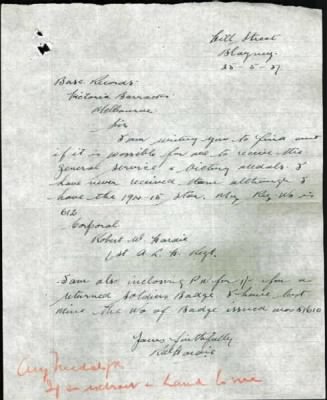 Hill Street
Blayney
25-5-37
Base Records
Victoria Barracks
Melbourne
Sir
I am writing you to find out
if it is possible for me to receive the
General Service & Victory medals. I
have never received them although I
have the 1914-15 Star. My Reg No is
612
Corporal
Robert W. Hardie
1st A. L. H. Regt.
I am also inclosing P.N for 1/- for a
returned Soldiers Badge I have lost
mine the No of Badge issued was
Yours faithfully
Hardie